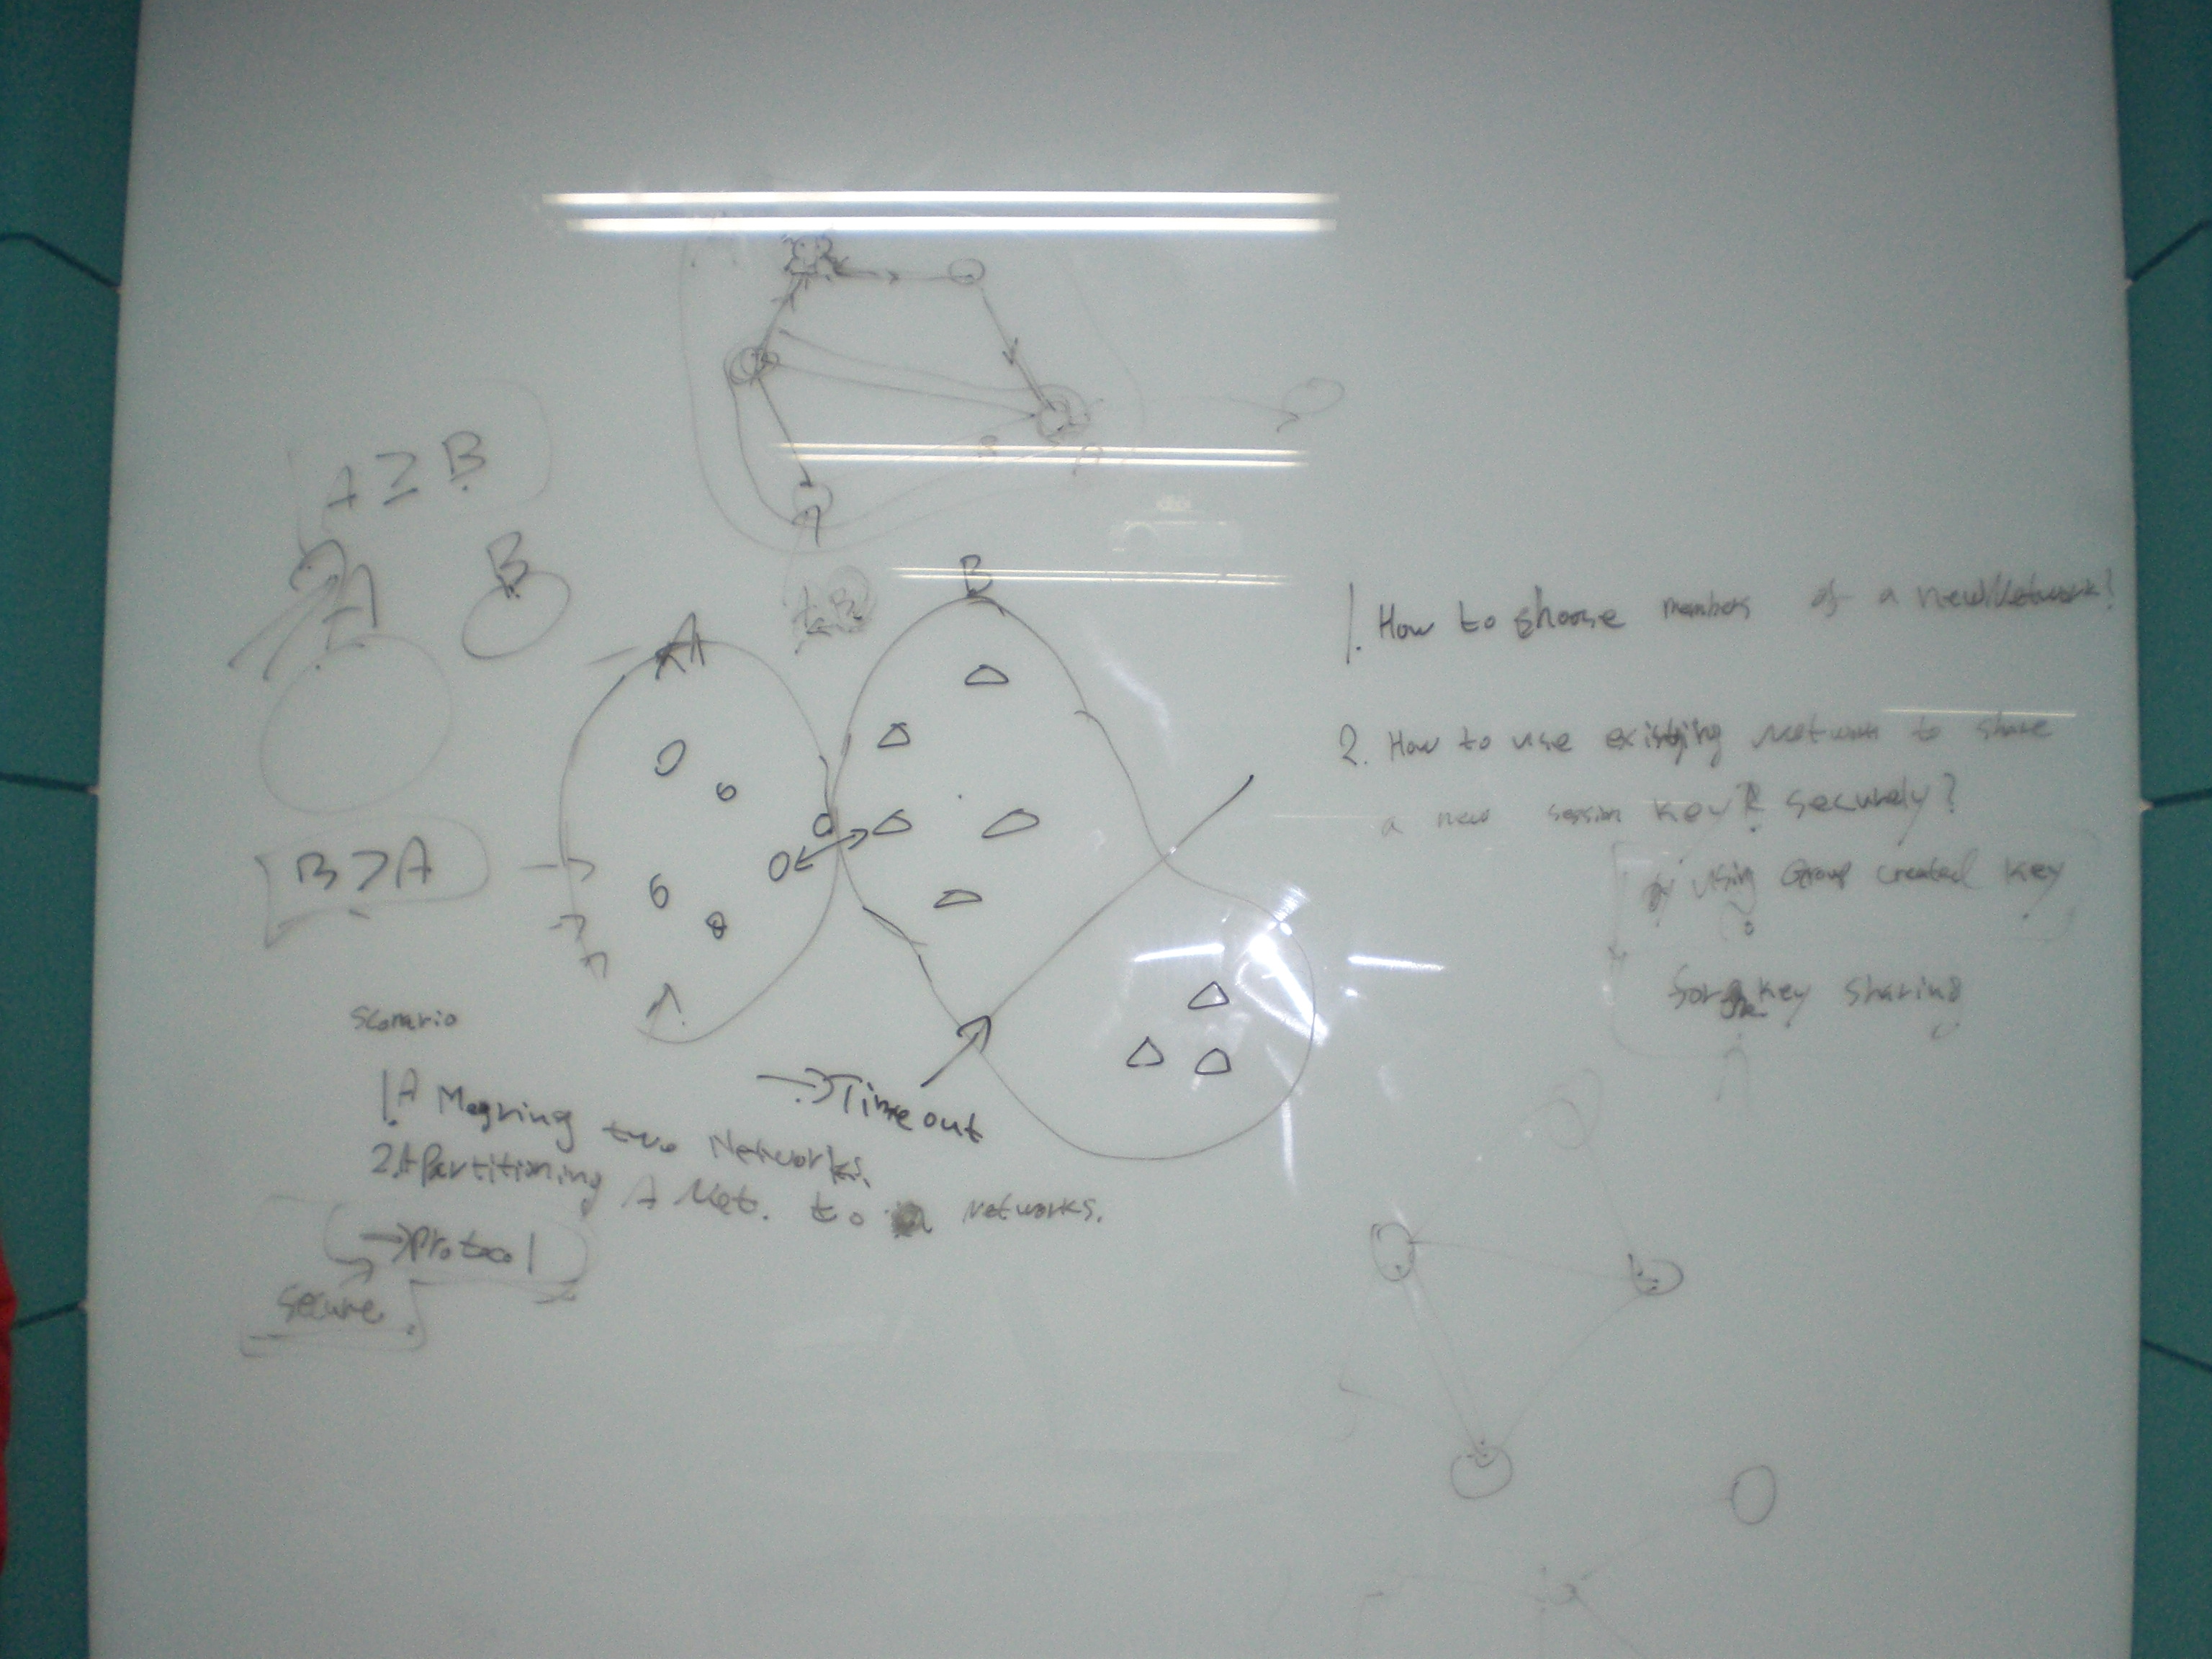 A ≥ B
B
A
B
B > A
Scenario
1. A Megring two Networks.
2. A Partitioning A Net. to networks.
→ Protocol
Secure
→ Time out
1. How to choose members of a new Network?
2. How to use existing Network to share
a new session key securely?
by using Group created key
for key sharing